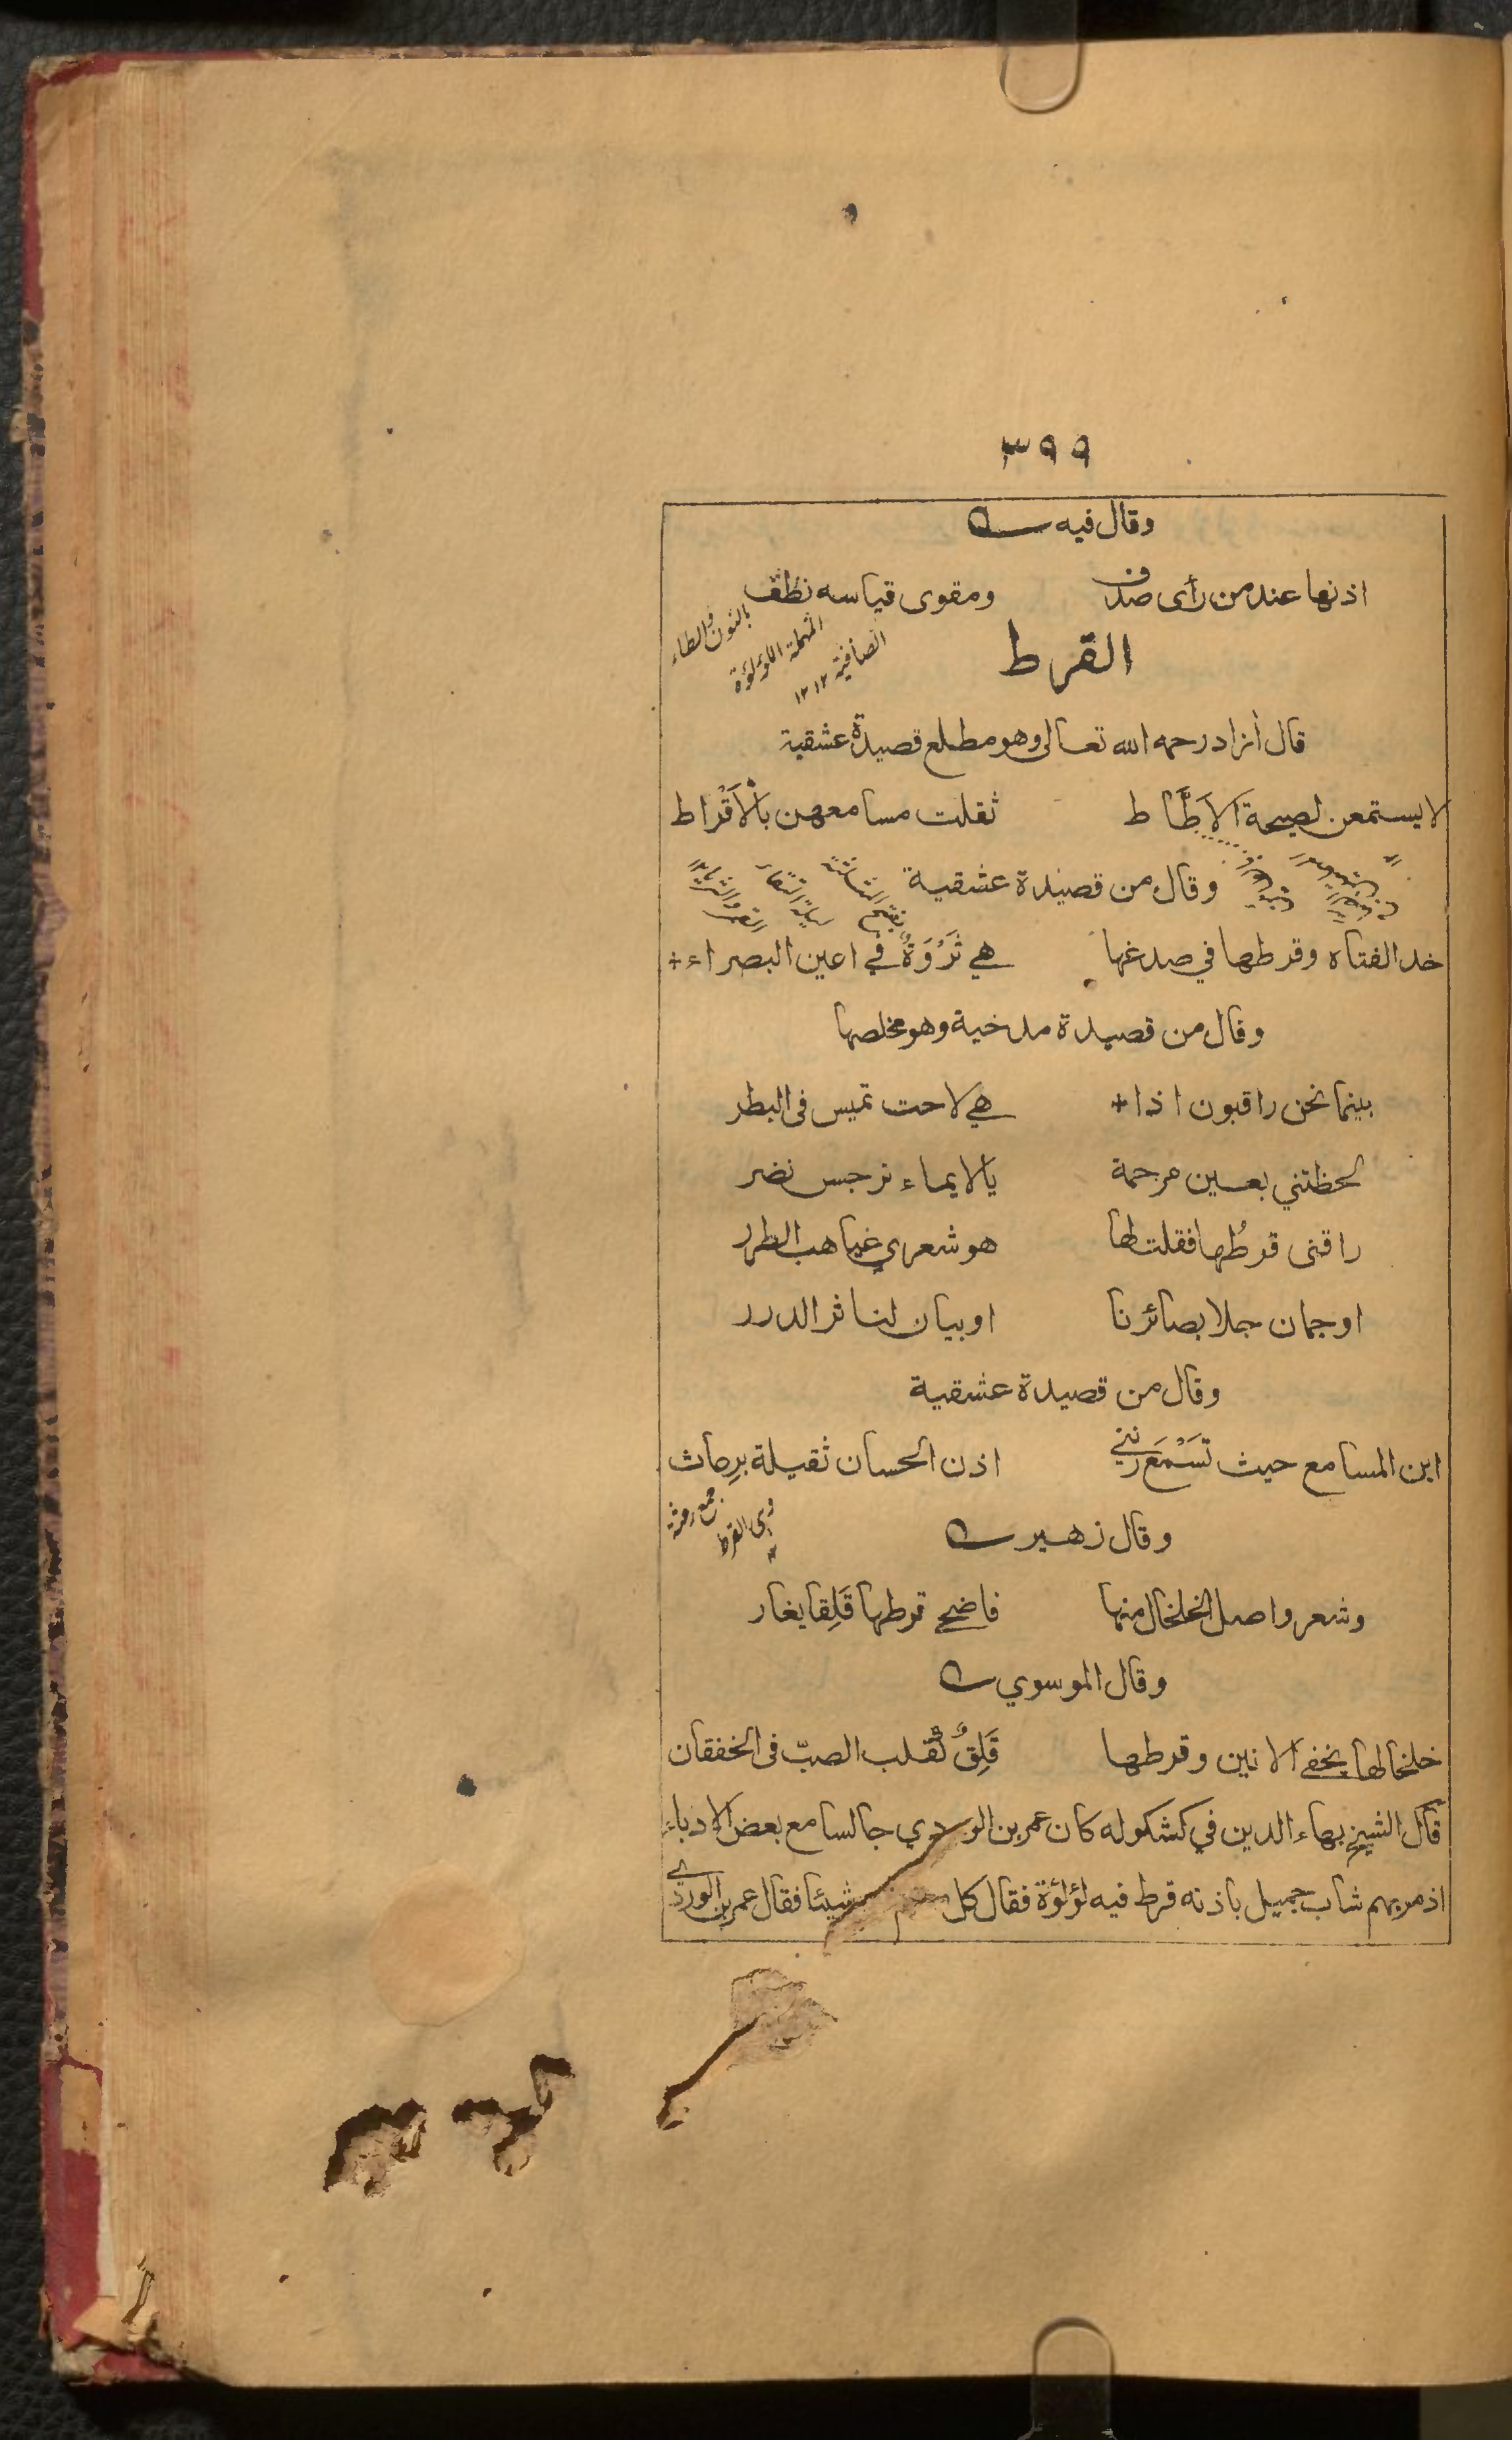 ٣٩٩
وقال فيه
اذنها عند من رأى صدف ومقوى قياسه نطف
بالنون والطاء
المهملة اللؤلؤة
الصافية ١٢ ١٢
القرط
قال أزاد رحمه الله تعالى وهو مطلع قصيدة عشقية
لا يستمعن لصيحة الاطاط ثقلت مسامعهن بالاقراط
وقال من قصيدة عشقية
خد الفتاه وقرطها في صدغها هي ثَرْوَةٌ في اعين البصراء +
وقال من قصيدة مدحية وهو مخلصها
بينما نحن راقبون اذا + هي لاحت تميس فى البطر
لحظتني بعين مرحمة يالايماء نرجس نضر
راقنى قرطُها فقلت لها هو شعرى غياهب الطرر
او جمان جلا بصائرنا او بيان لناثر الدرر
وقال من قصيدة عشقية
اين المسامع حيث تَسْمَع رنتي اذن الحسان ثقيلة برِعاث
جمع رعثة
وهى القرط
وقال زهير
وشعر واصل الخلخال منها فاضحى قرطها قَلِقا يغار
وقال الموسوي
خلخالها يخفى الانين وقرطها قَلِقٌ كقلب الصبّ فى الخفقان
قال الشيخ بهاء الدين في كشكوله كان عمر بن الوردي جالسا مع بعض الادباء
اذ مر بهم شاب جميل باذنه قرط فيه لؤلؤة فقال كل شيئا فقال عمر بن الوردي